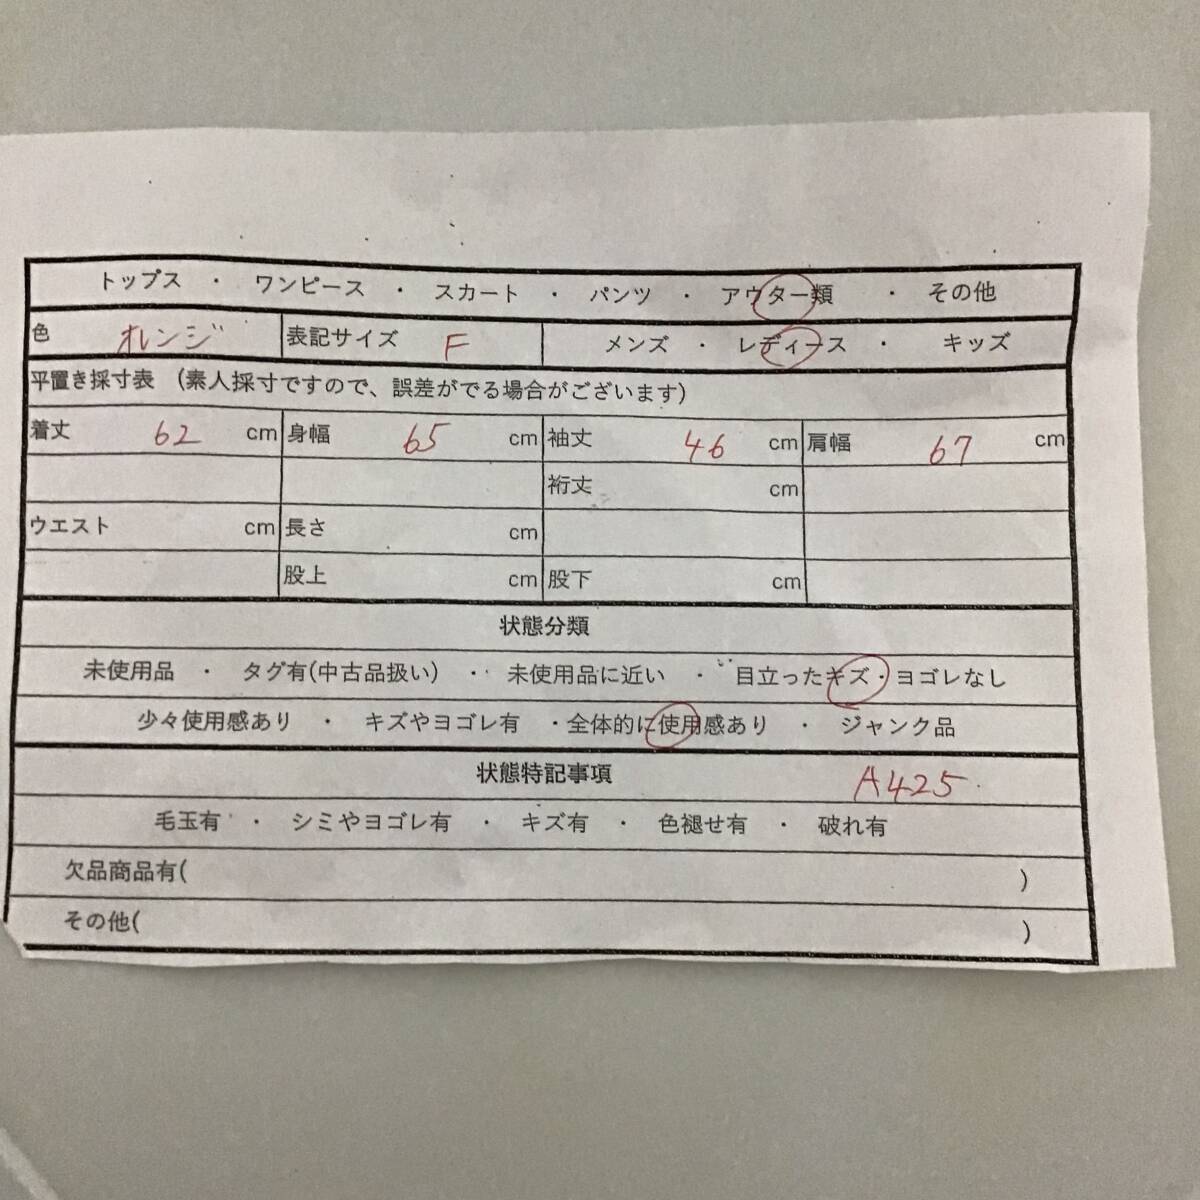 トップス ・ ワンピース ・ スカート ・ パンツ ・ アウター類 ・ その他
色 オレンジ 表記サイズ F メンズ ・ レディース ・ キッズ
平置き採寸表 (素人採寸ですので、誤差がでる場合がございます)
着丈 62 cm 身幅 65 cm 袖丈 46 cm 肩幅 67 cm
裄丈 cm
ウエスト cm 長さ cm
股上 cm 股下 cm
状態分類
未使用品 ・ タグ有(中古品扱い) ・ 未使用品に近い ・ 目立ったキズ・ヨゴレなし
少々使用感あり ・ キズやヨゴレ有 ・全体的に使用感あり ・ ジャンク品
状態特記事項 A425
毛玉有 ・ シミやヨゴレ有 ・ キズ有 ・ 色褪せ有 ・ 破れ有
欠品商品有( )
その他( )